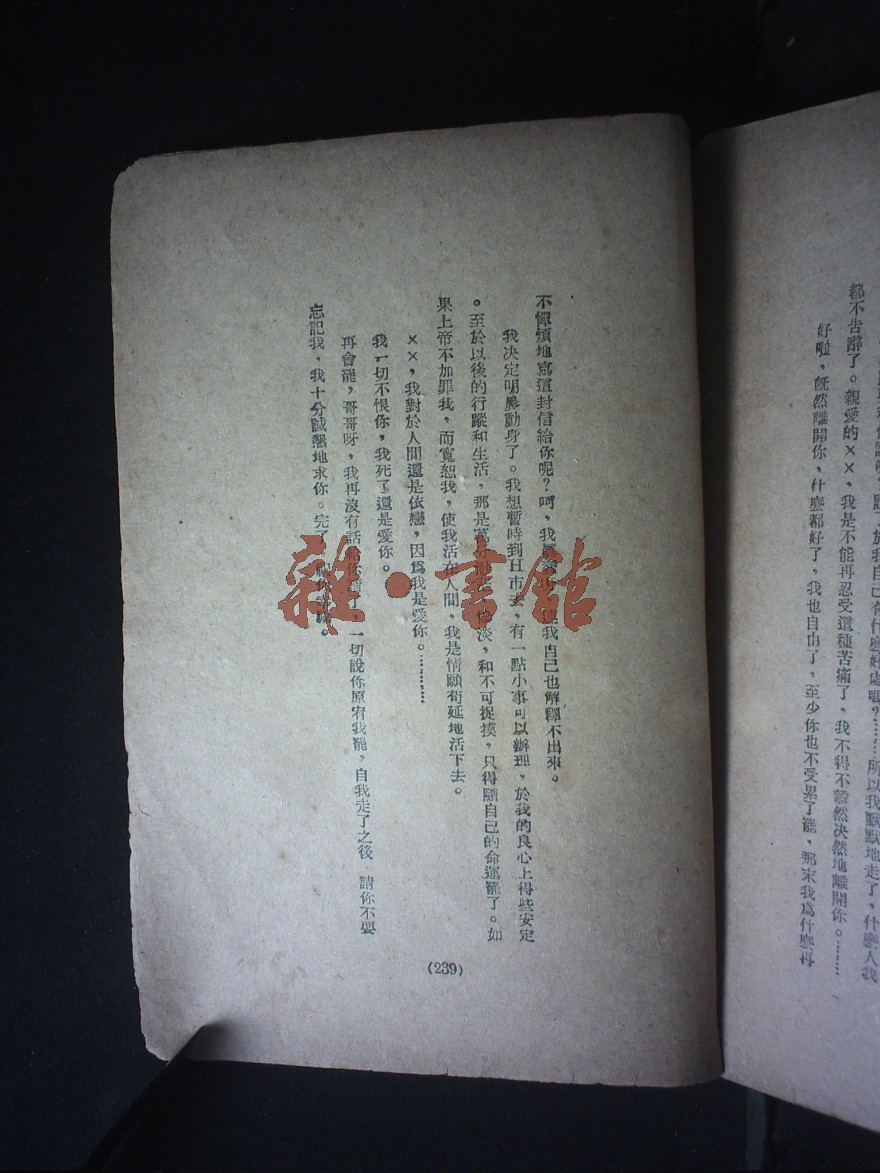 都不告辭了。親愛的××，我是不能再忍受這種苦痛了，我不得不毅然决然地離開你。……
好啦，旣然離開你，什麼都好了，我也自由了，至少你也不受累了罷，那末我爲什麼再
不憚煩地寫這封信給你呢？呵，我 連我自己也解釋不出來。
我决定明晨動身了。我想暫時到H市去，有一點小事可以辦理，於我的良心上得些安定
。至於以後的行蹤和生活，那是萬分 淡，和不可捉摸，只得隨自己的命運罷了。如
果上帝不加罪我，而寬恕我，使我活在人間，我是情願苟延地活下去。
××，我對於人間還是依戀，因爲我是愛你。…………
我一切不恨你，我死了還是愛你。
再會罷，哥哥呀，我再沒有話給你 了，一切說你原宥我罷，自我走了之後 請你不要
忘記我，我十分誠懇地求你。完了 。
(239)
雜·書館